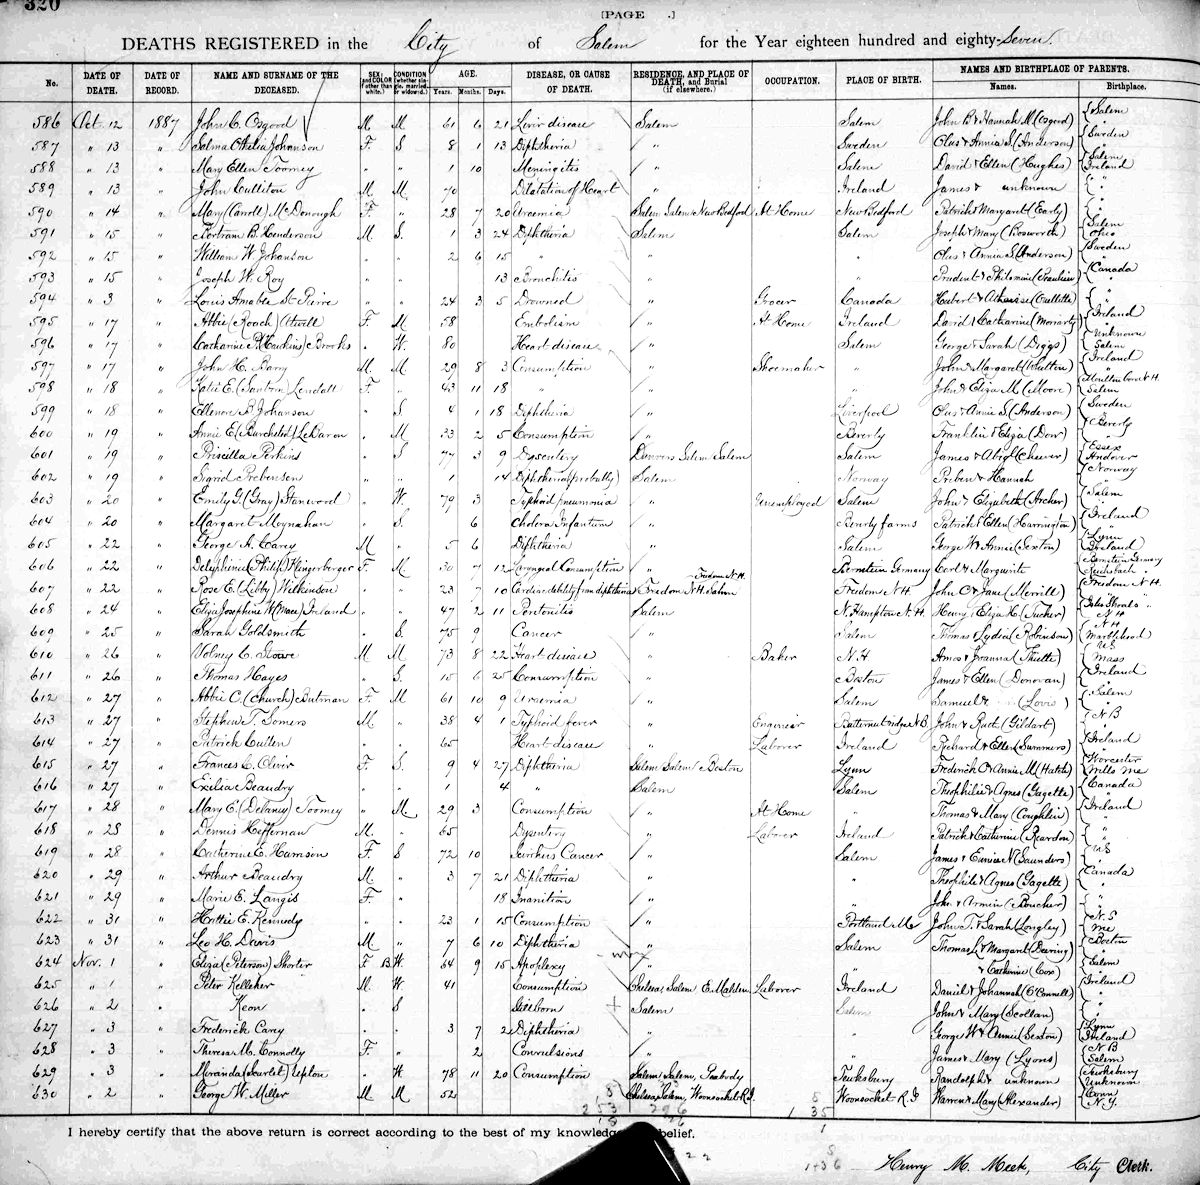 320
[PAGE .]
DEATHS REGISTERED in the City of Salem for the Year eighteen hundred and eighty-Seven.
No. DATE OF DEATH. DATE OF RECORD. NAME AND SURNAME OF THE DECEASED. SEX; and COLOR (if other than white.) CONDITION (whether single, married, or widowed.) AGE. Years. Months. Days. DISEASE, OR CAUSE OF DEATH. RESIDENCE, AND PLACE OF DEATH, and Burial (if elsewhere.) OCCUPATION. PLACE OF BIRTH. NAMES AND BIRTHPLACE OF PARENTS. Names. Birthplace.
586 Oct. 12 1887 John C. Osgood M M 61 6 21 Liver disease Salem Salem John B & Hannah M (Osgood) Salem
587 " 13 " Selma Othelia Johanson F S 8 1 13 Diphtheria " Sweden Olas & Annia S (Anderson) Sweden
588 " 13 " Mary Ellen Toomey " " 1 10 Meningitis " Salem David & Ellen (Hughes) Salem Ireland
589 " 13 " John Culliton M M 70 Dilatation of Heart " Ireland James & unknown "
590 " 14 " Mary (Carroll) McDonough F " 28 7 20 Uraemia Salem Salem New Bedford At Home New Bedford Patrick & Margaret (Early) "
591 " 15 " Bertram B. Henderson M. S. 1 3 24 Diphtheria Salem Salem Joseph & Mary (Bosworth) Salem Ohio
592 " 15 " William W. Johanson " " 2 6 15 " " " Olas & Annia S (Anderson) Sweden
593 " 15 " Joseph W. Roy " " 13 Bronchitis " " Prudent & Philomine Canada
594 " 3 " Louis Amable St Pierre " " 24 3 5 Drowned " Grocer Canada Hubert & "
595 " 17 " Abbie (Roach) Atwill F. M 58 Embolism " At Home Ireland David & Catharine (Moriarty) Ireland
596 " 17 " Catharine P. (Hawkins) Brooks " W. 80 Heart disease " Salem George & Sarah (Diggs) Unknown Salem
597 " 17 " John H. Barry M M 29 8 3 Consumption " Shoemaker " John & Margaret (Whelton) Ireland
598 " 18 " Katie E. (Santom) Kendall F " 43 11 18 " " " John & Eliza M. (Moore) Moultonboro N.H. Salem
599 " 18 " Ellenore B Johanson " S 4 1 18 Diphtheria " Liverpool Olas & Annie S. (Anderson) Sweden
600 " 19 " Annie E. (Burchsted) LeBaron " M 23 2 5 Consumption " Beverly Franklin & Eliza (Dow) Beverly
601 " 19 " Priscilla Perkins " S 77 3 9 Dysentery Danvers Salem Salem Salem James & Abigl (Cheever) Essex Andover
602 " 19 " Sigrid Prebenson " " 1 14 Diphtheria (probably) Salem Norway Preben & Hannah Norway
603 " 20 " Emily G. (Gray) Stanwood " W. 79 3 Typhoid pneumonia " Unemployed Salem John & Elizabeth (Archer) Salem
604 " 20 " Margaret Moynahan " S. 6 Cholera Infantum " Beverly farms Patrick & Ellen (Harrington) Ireland
605 " 22 " George A. Carey M " 5 6 Diphtheria " Salem George W & Annie (Sexton) Lynn Ireland
606 " 22 " Delephinia (Philip) Klingerberger F. M 30 7 12 Laryngeal Consumption " Bernstein Germany Carl & Marguerite Bernstein Germany Reichbach
607 " 22 " Rose E. (Libby) Wilkinson " " 23 7 10 Cardiac debility from diphtheria Freedom N.H. Salem Freedom N.H. Freedom N.H. John O & Jane (Merrill) Freedom N.H.
608 " 24 " Eliza Josephine W (Mace) Ireland " " 47 2 11 Peritonitis Salem N. Hampton N.H. Henry & Eliza H. (Tucker) Isles Shoals N H
609 " 25 " Sarah Goldsmith " S. 75 9 Cancer " Salem Thomas & Lydia (Robinson) N H Marblehead
610 " 26 " Volney C. Stowe M M 73 8 22 Heart disease " Baker N.H. Amos & Joanna US Mass
611 " 26 " Thomas Hayes " S. 15 6 25 Consumption " Boston James & Ellen (Donovan) Ireland
612 " 27 " Abbie C. (Church) Butman F. M 61 10 9 Uraemia " Salem Samuel & Salem
613 " 27 " Stephen T. Somers M. " 38 4 1 Typhoid fever " Engineer Butternut ridge N.B. John & Ruct. (Gildart) N B
614 " 27 " Patrick Cullen " " 65 Heart disease " Laborer Ireland Richard & Ellen (Summers) Ireland
615 " 27 " Frances C. Oliver F. S. 9 4 27 Diphtheria Salem Salem Boston Lynn Frederick O & Annie M (Hatch) Worcester Wells Me
616 " 27 " Exilia Beaudry " " 1 4 " Salem Salem Theophilie & Agnes (Gagette) Canada
617 " 28 " Mary E. (Delaney) Toomey " M. 29 3 Consumption " At Home " Thomas & Mary (Coughlin) Ireland
618 " 28 " Dennis Heffernan M. " 65 Dysentery " Laborer Ireland Patrick & Catherine (Reardon) "
619 " 28 " Catherine E. Harrison F. S 72 10 Cancer " Salem James & Eunice N (Saunders) US
620 " 29 " Arthur Beaudry M. " 3 7 21 Diphtheria " " Theophile & Agnes (Gagette) Canada
621 " 29 " Marie E. Langis F. " 18 Inanition " " John & Armine (Boucher) "
622 " 31 " Hattie E. Kennedy " " 23 1 15 Consumption " Portland Me John T. & Sarah (Longley) N.S. Me
623 " 31 " Leo H. Davis M " 7 6 10 Diphtheria " Salem Thomas L. & Margaret (Deering) Boston
624 Nov. 1 " Eliza (Peterson) Shorter F B W. 64 9 15 Apoplexy " " & Catherine (Cox) Salem
625 " 1 " Peter Kelleher M. W 41 Consumption Chelsea, Salem E. Malden Laborer Ireland Daniel & Johannah (O'Connell) Ireland
626 " 2 " Keon " S Stillborn Salem Salem John & Mary (Scollan) "
627 " 3 " Frederick Carey " " 3 7 2 Diphtheria " " George W & Annie (Sexton) Lynn Ireland
628 " 3 " Theresa M. Connolly F. " 2 Convulsions " " James & Mary (Lyons) N B Salem
629 " 3 " Miranda (Scarlet) Upton " W 78 11 20 Consumption Salem, Salem, Peabody Tewksbury Randolph & unknown Tewksbury Unknown
630 " 2 " George W. Miller M M 52 Chelsea, Salem, Woonsocket R.I. Woonsocket R.I. Warren & Mary (Alexander) Conn N.Y.
I hereby certify that the above return is correct according to the best of my knowledge belief.
Henry M. Meek, City Clerk.